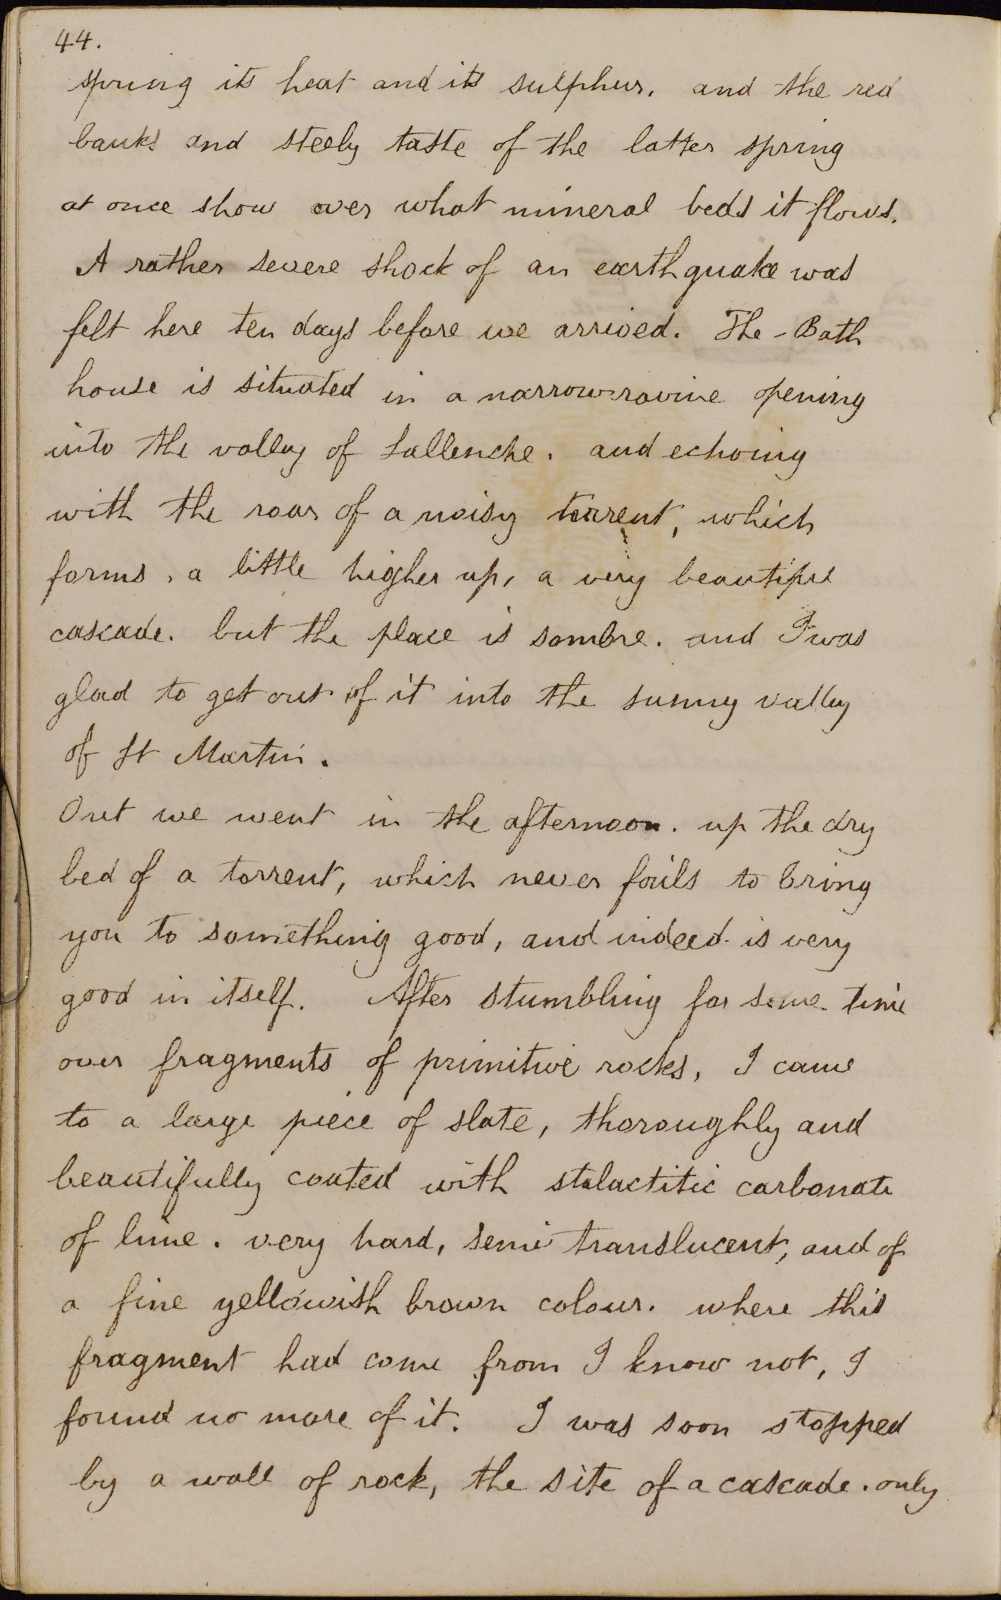 44.
spring its heat and its sulphur. and the red
banks and steely taste of the latter spring
at once show over what mineral beds it flows.
A rather severe shock of an earthquake was
felt here ten days before we arrived. The - Bath
house is situated in a narrow ravine opening
into the valley of Sallenche. and echoing
with the roar of a noisy torrent, which
forms, a little higher up, a very beautiful
cascade. but the place is sombre. and I was
glad to get out of it into the sunny valley
of St Martin.
Out we went in the afternoon. up the dry
bed of a torrent, which never fails to bring
you to something good, and indeed is very
good in itself. After stumbling for some time
over fragments of primitive rocks, I came
to a large piece of slate, thoroughly and
beautifully coated with stalactitic carbonate
of lime. very hard, semi translucent, and of
a fine yellowish brown colour. where this
fragment had come from I know not, I
found no more of it. I was soon stopped
by a wall of rock, the site of a cascade. only